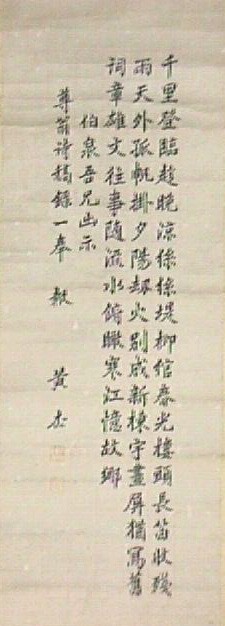 千里登臨趁晚涼絲絲堤柳綰春光樓頭長笛收殘
雨天外孤帆掛夕陽劫火別成新棟宇畫屏猶寫舊
詞章雄文往事隨流水俯瞰寒江憶故鄉
伯泉吾兄出示
尊翁詩稿錄一奉報 黃杰